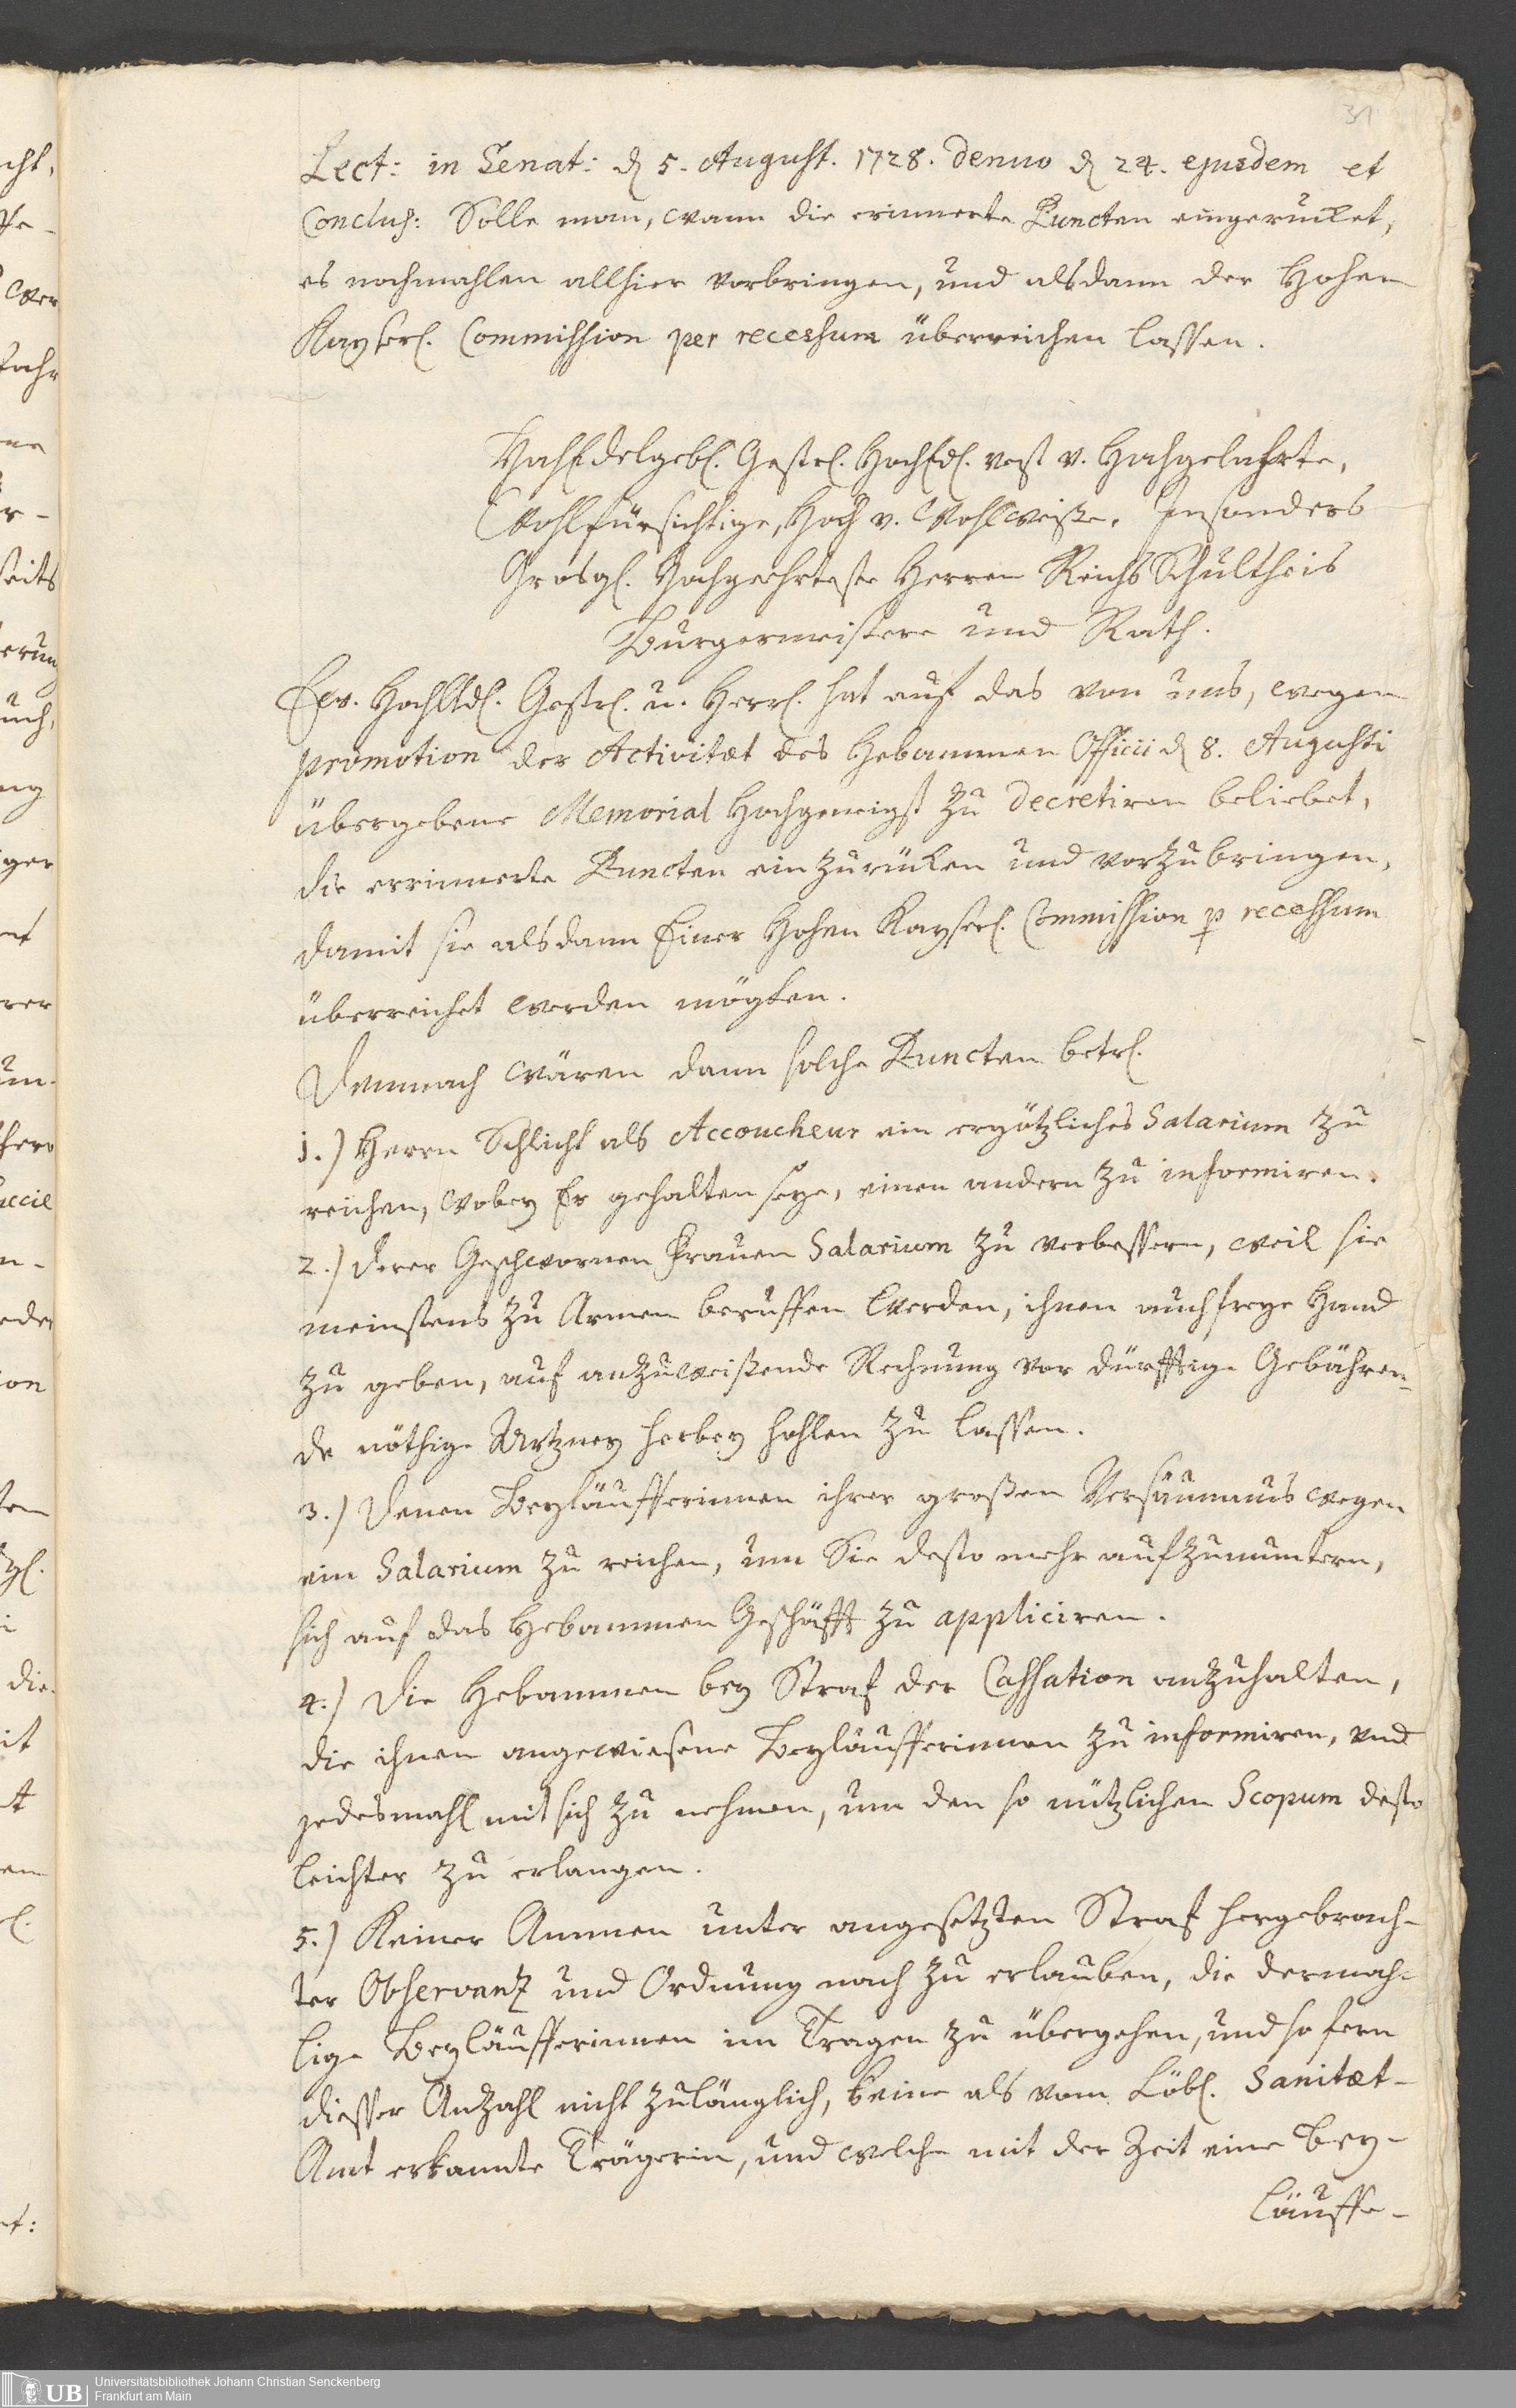 31
Lect: in Senat: d 5. August. 1728. denuo d 24. ejusdem et
Conclus: Solle man, wann die erinnerte Puncten eingerucket,
es nochmahlen allhier vorbringen, und alsdann der Hohen
Kayserl. Commission per recessum überreichen lassen.
HochEdelgebl. Gestrl. Hochfdl. vest v. Hochgelahrte,
Wohlfürsichtige, Hoch v. Wohlweiße, Insonders
Grosgl. Hochgeehrteste Herren Reichs Schultheis
Burgermeistere und Rath.
Ew. Gestrl. u. Herrl. hat auf das von uns, wegen
promotion der Activitæt des Hebammen Officii d 8. Augusti
übergebene Memorial Hochgeneigst zu decretiren beliebet,
die errinnerte Puncten einzurücken und vorzubringen,
damit sie alsdann Einer Hohen Kayserl. Commission p recessum
überreichet werden mögten.
Demnach wären dann solche Puncten betrl.
1.) Herrn Schlicht als Accoucheur ein ergötzliches Salarium zu
reichen, wobey Er gehalten seye, einen andern zu informiren.
2.) Derer Geschwornen Frauen Salarium zu verbessern, weil sie
meinstens zu Armen beruffen werden, ihnen auch freye Hand
zu geben, auf anzuweißende Rechnung vor dürfftige Gebähren-
de nöthige Artzney herbey hohlen zu lassen.
3.) Denen Beyläufferinnen ihrer großen Versäumnus wegen
ein Salarium zu reichen, um Sie desto mehr aufzumuntern,
sich auf das Hebammen Geschäfft zu appliciren.
4.) Die Hebammen bey Straf der Cassation anzuhalten,
die ihnen angewiesene Beyläufferinnen zu informiren, und
jedesmahl mit sich zu nehmen, um den so nützlichen Scopum desto
leichter zu erlangen.
5.) Keiner Ammen unter angesetzten Straf hergebrach-
ter Observantz und Ordnung nach zu erlauben, die dermah-
lige Beyläufferinnen im Tragen zu übergehen, und so fern
diesser Anzahl nicht zulänglich, keine als vom Löbl. Sanitæt-
Amt erkannte Trägerin, und welche mit der Zeit eine Bey-
läuffe-
UB Universitätsbibliothek Johann Christian Senckenberg
Frankfurt am Main